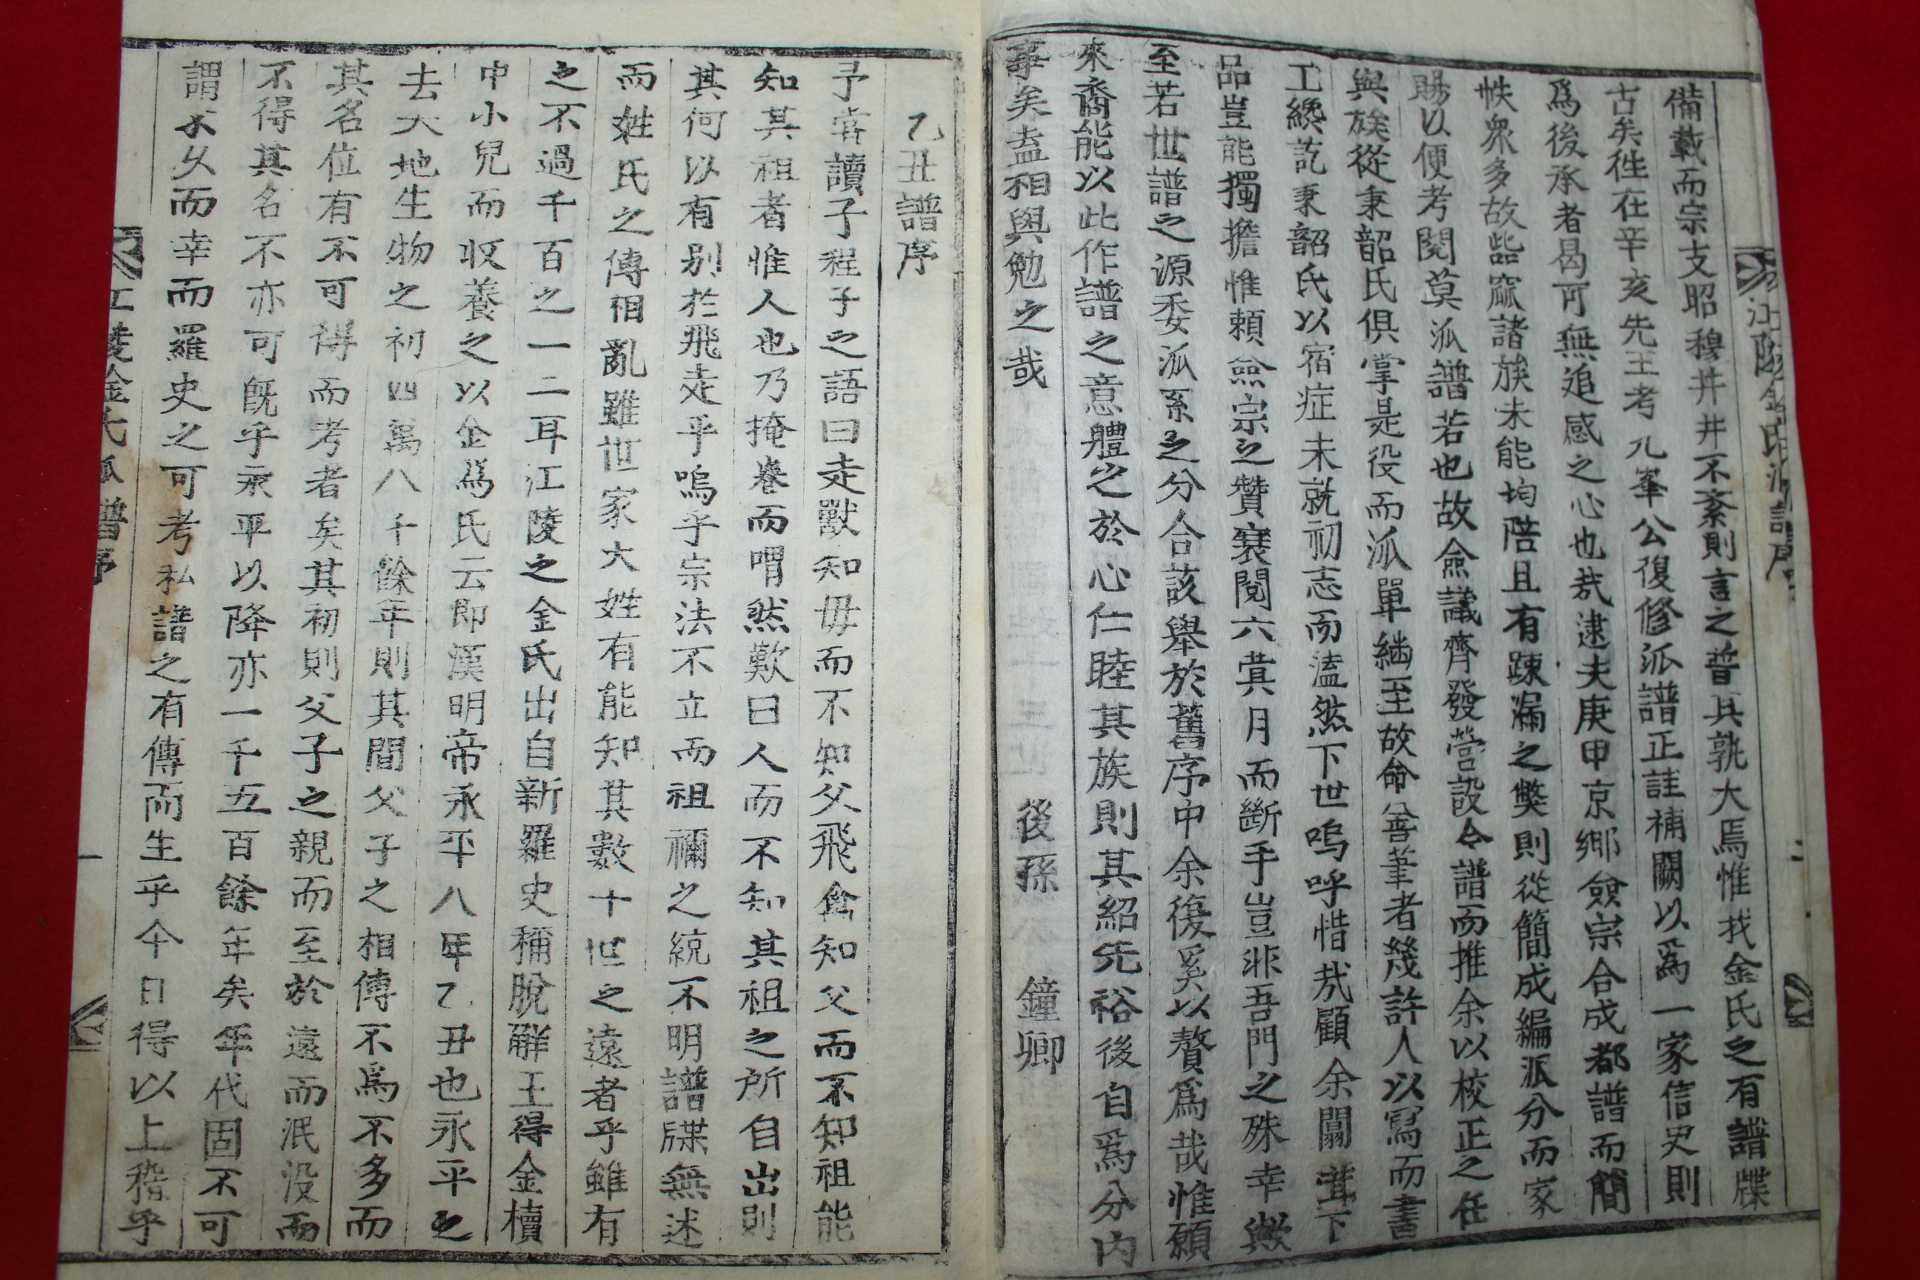 江陵金氏派譜序
備載而宗支昭穆井井不紊則言之普具孰大焉惟我金氏之有譜牒
古矣徃在辛亥先王考九峯公復修派譜正註補闕以爲一家信史則
爲後承者曷可無追感之心也哉逮夫庚甲京鄕僉宗合成都譜而簡
帙衆多故訾窳諸族未能均陪且有踈漏之獘則從簡成編派分而家
賜以便考閱莫派譜若也故僉議齊發營設今譜而推余以校正之任
與族從秉韶氏俱掌是役而派單繼至故命善筆者幾許人以寫而書
工纔訖秉韶氏以宿症未就初志而溘然下世嗚呼惜哉顧余闒茸下
品豈能獨擔惟賴僉宗之贊襄閱六蓂月而斷手豈非吾門之殊幸歟
至若世譜之源委派系之分合該舉於舊序中余復奚以贅爲哉惟願
來裔能以此作譜之意體之於心仁睦其族則其紹先裕後自爲分內
事矣盍相與勉之哉
後孫 鐘卿
乙丑譜序
予嘗讀子程子之語曰走獸知母而不知父飛禽知父而不知祖能
知其祖者惟人也乃掩卷而喟然歎曰人而不知其祖之所自出則
其何以有別於飛走乎嗚乎宗法不立而祖禰之統不明譜牒無述
而姓氏之傳相亂雖世家大姓有能知其數十世之遠者乎雖有
之不過千百之一二耳江陵之金氏出自新羅史稱脫觧王得金櫝
中小兒而收養之以金爲氏云即漢明帝永平八年乙丑也永平之
去天地生物之初四萬八千餘年則其間父子之相傳不爲不多而
其名位有不可得而考者矣其初則父子之親而至於遠而泯沒而
不得其名不亦可旣乎永平以降亦一千五百餘年矣年代固不可
謂不久而幸而羅史之可考私譜之有傳而生乎今日得以上稽乎
江陵金氏派譜序
一